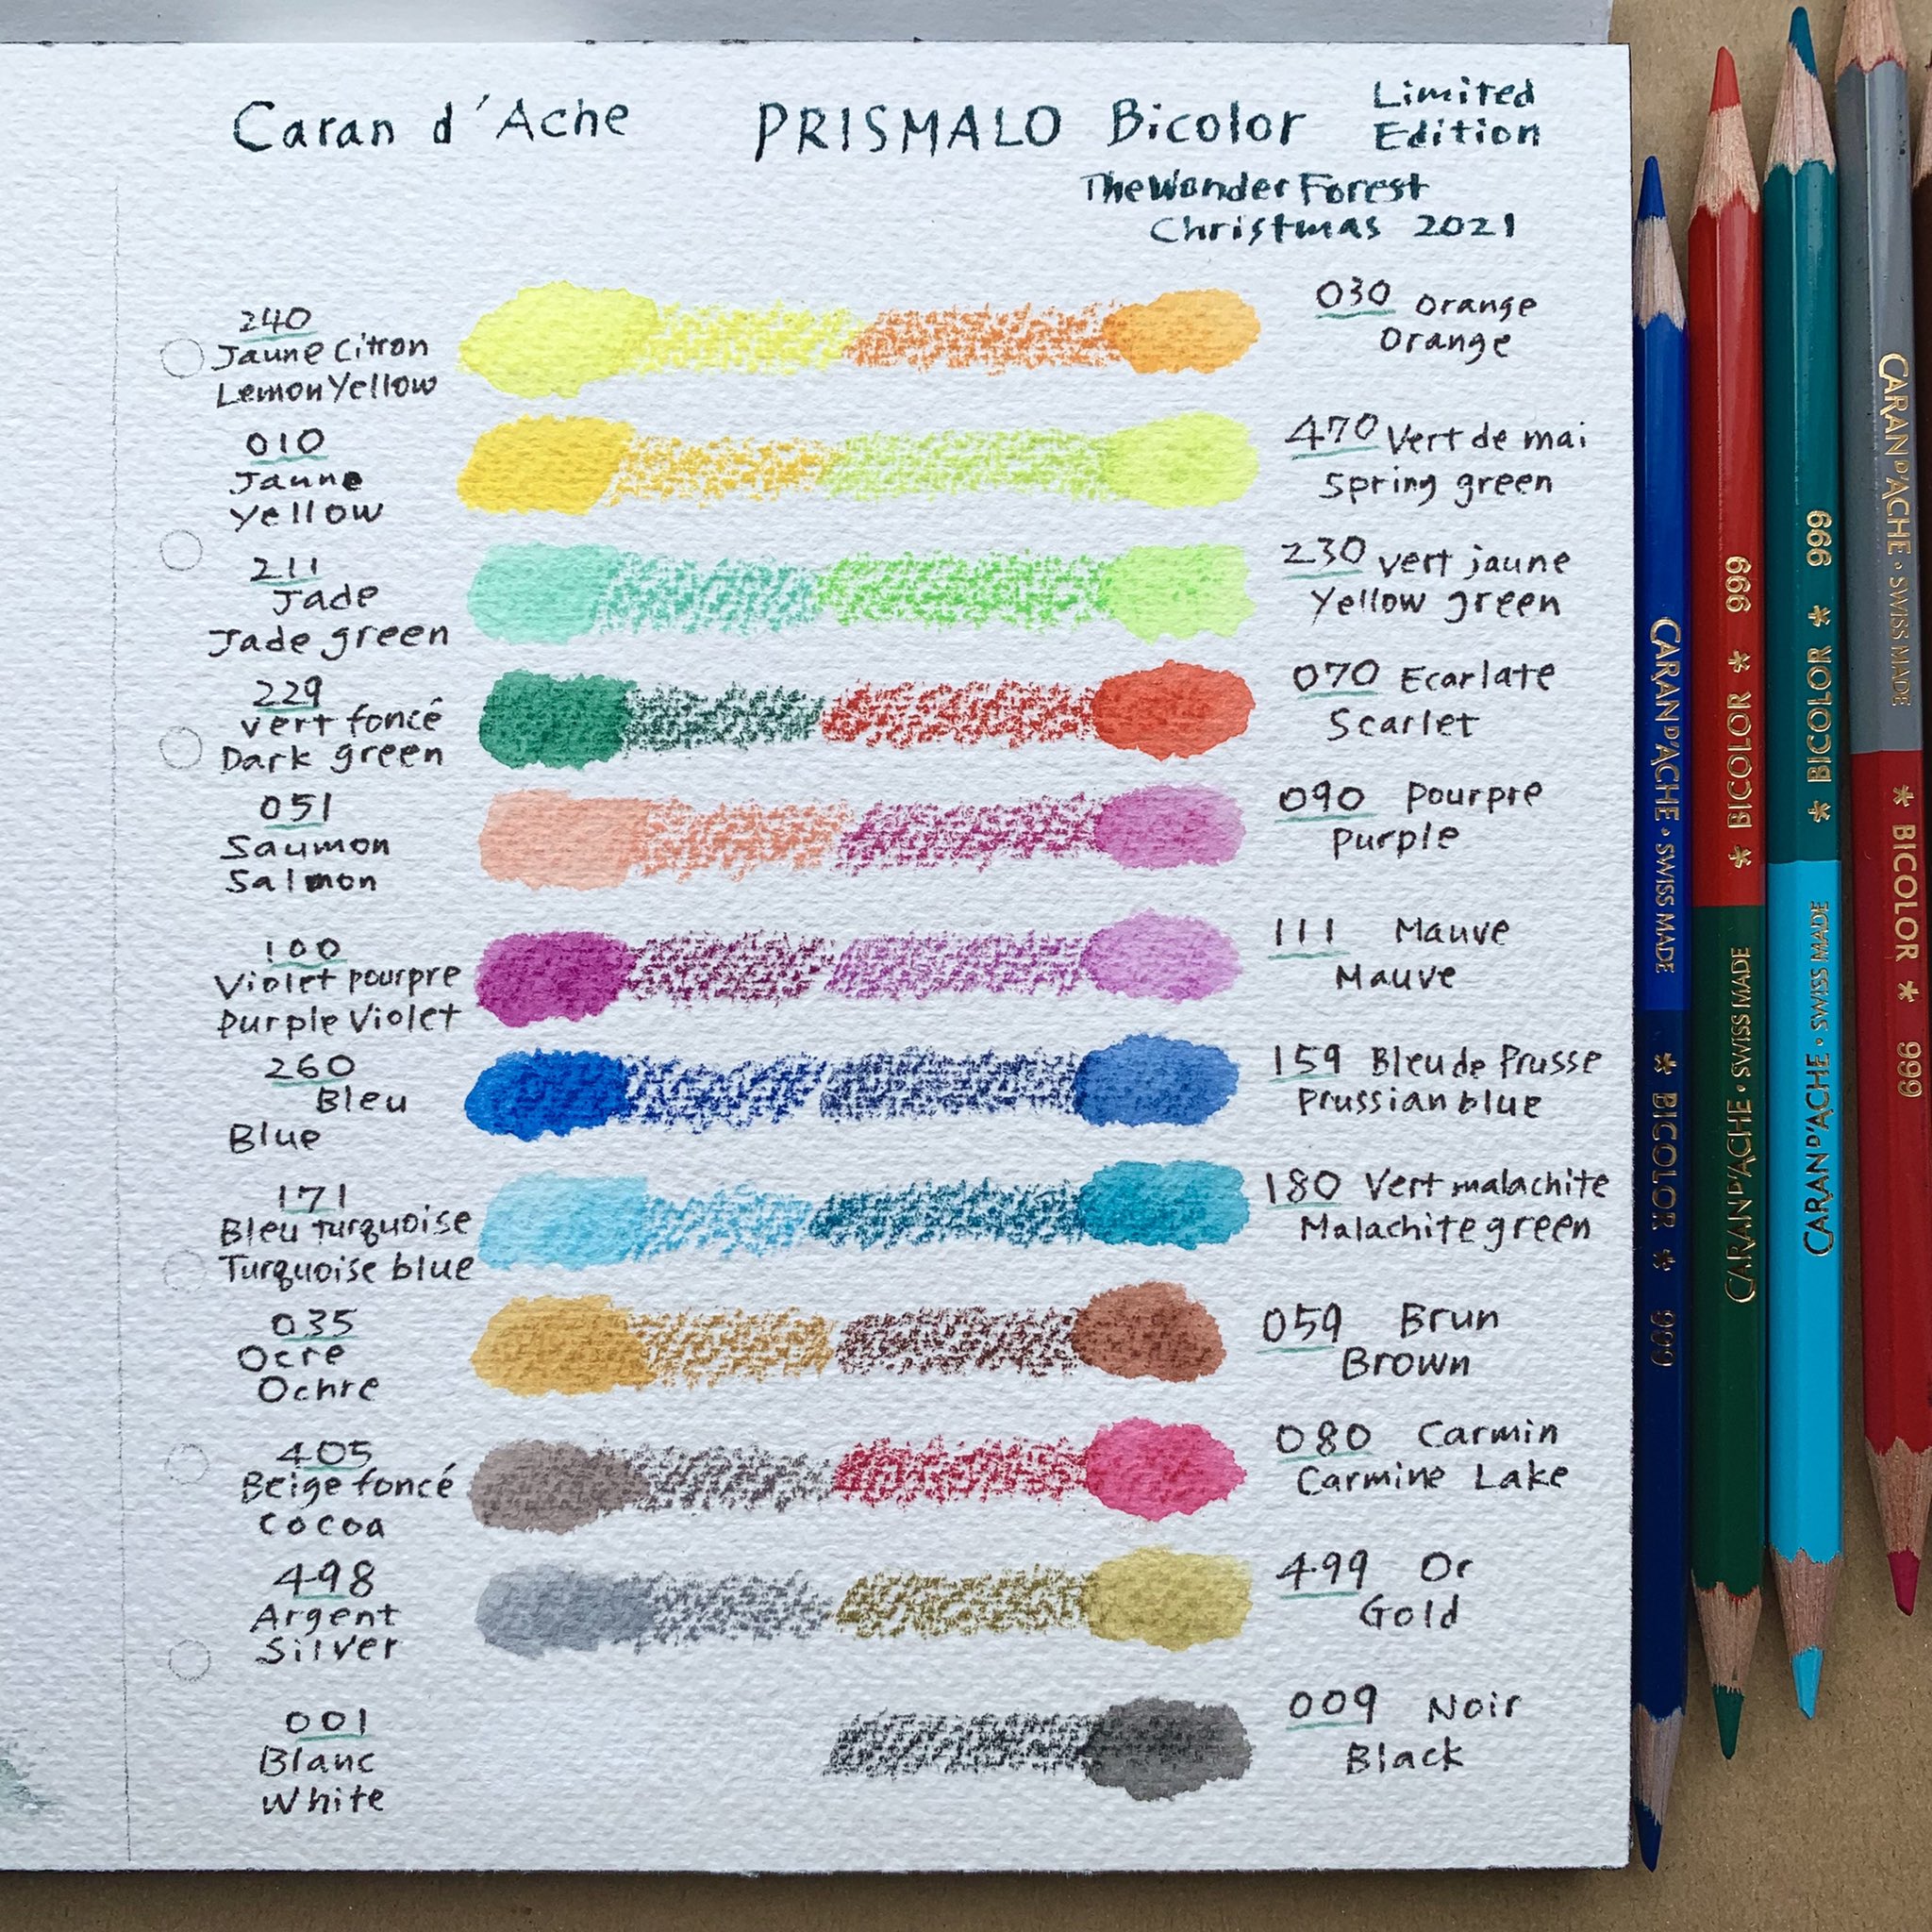 Caran d'Ache PRISMALO Bicolor Limited
Edition
The Wonder Forest
Christmas 2021
240
Jaune Citron
Lemon Yellow
030 Orange
Orange
010
Jaune
Yellow
470 Vert de mai
Spring green
211
Jade
Jade green
230 vert jaune
Yellow green
229
vert foncé
Dark green
070 Ecarlate
Scarlet
051
Saumon
Salmon
090 Pourpre
Purple
100
Violet pourpre
Purple Violet
111 Mauve
Mauve
260
Bleu
Blue
159 Bleu de Prusse
Prussian blue
171
Bleu turquoise
Turquoise blue
180 Vert malachite
Malachite green
035
Ocre
Ochre
059 Brun
Brown
405
Beige foncé
Cocoa
080 Carmin
Carmine Lake
498
Argent
Silver
499 Or
Gold
001
Blanc
White
009 Noir
Black
CARAN D'ACHE · SWISS MADE * BICOLOR * 999
CARAN D'ACHE · SWISS MADE * BICOLOR * 999
CARAN D'ACHE · SWISS MADE * BICOLOR * 999
CARAN D'ACHE · SWISS MADE * BICOLOR * 999